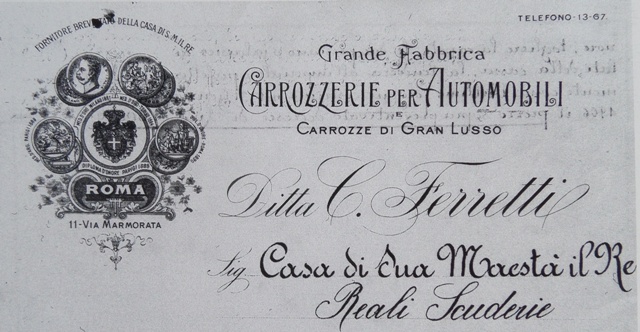 TELEFONO-13-67.
FORNITORE BREVETTATO DELLA CASA DI S.M. IL RE
Grande Fabbrica
CARROZZERIE PER AUTOMOBILI
E
CARROZZE DI GRAN LUSSO
DIPLOMA D'ONORE
ROMA
11-VIA MARMORATA
Ditta C. Ferretti
Sig Casa di Sua Maestà il Re
Reali Scuderie